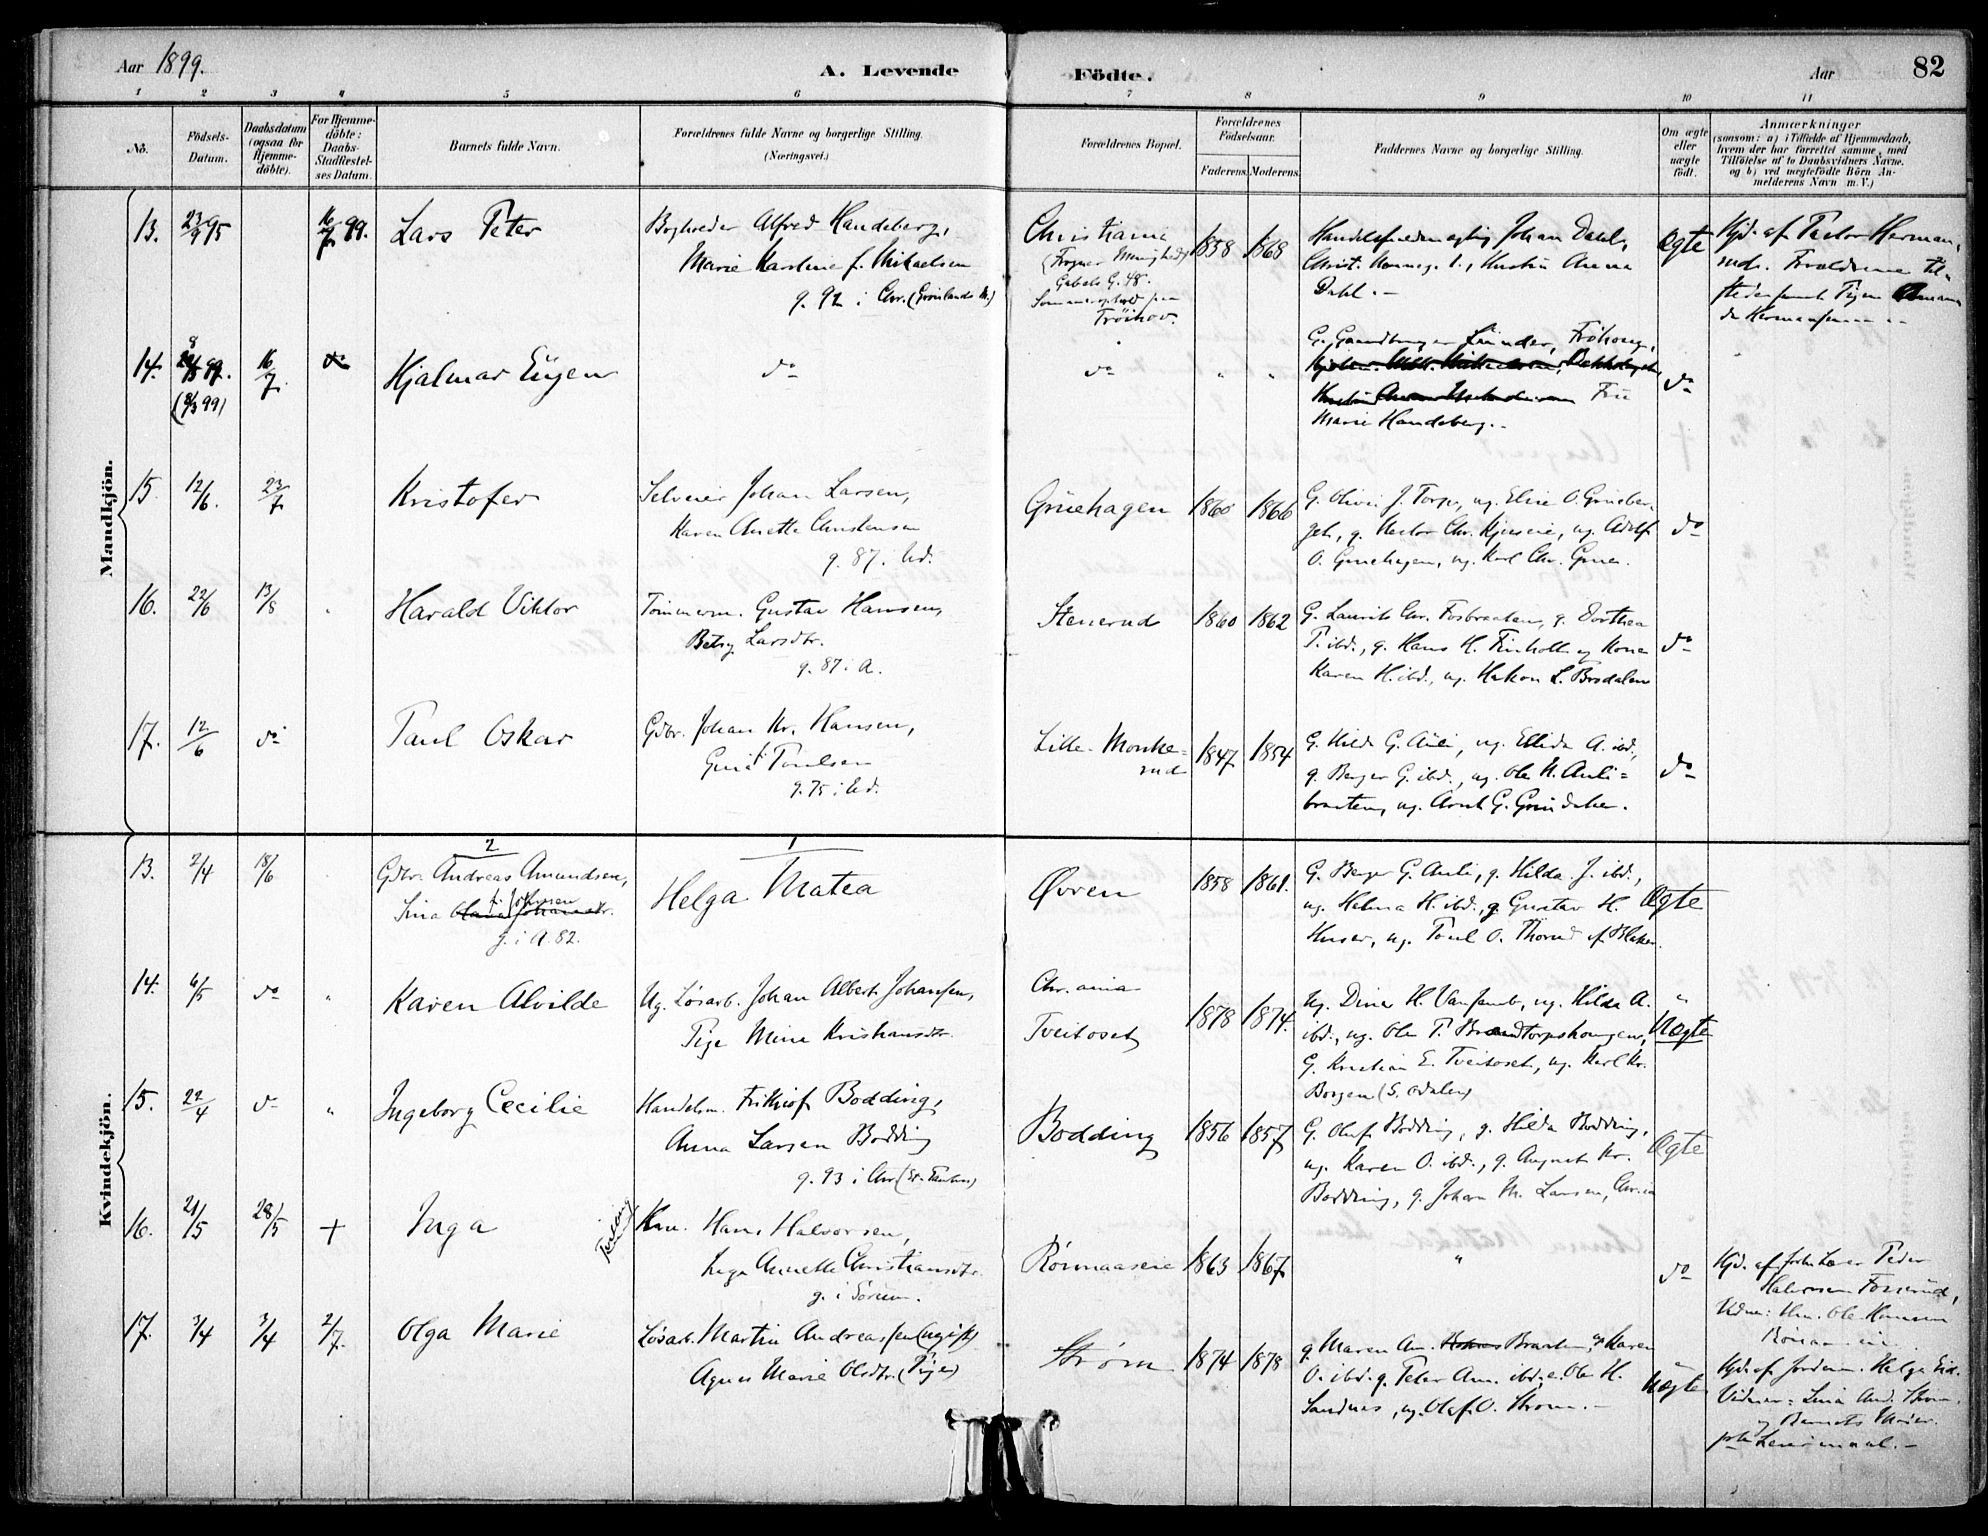 Aar 1899.
A. Levende Födte.
Aar
82
1 2 3 4 5 6 7 8 9 10 11
No.
Födsels-Datum.
Daabsdatum (ogsaa for Hjemme-döbte).
For Hjemme-döbte: Daabs-Stadfæstel-ses Datum.
Barnets fulde Navn.
Forældrenes fulde Navne og borgerlige Stilling. (Næringsvei.)
Forældrenes Bopæl.
Forældrenes Födselsaar.
Faderens. Moderens.
Faddernes Navne og borgerlige Stilling.
Om ægte eller uægte födt.
Anmærkninger
(saasom: a) i Tilfælde af Hjemmedaab,
hvem der har forrettet samme, med
Tilföielse af to Daabsvidners Navne.
og b) ved uægtefödte Börn An-
melderens Navn m.V.)
Mandkjön.
13. 23/9 95 16/7 99. Lars Peter
Alfred Handeberg,
Marie Karoline f. Mikaelsen
g. 92 i Chr. (Grønlands M.)
Christiania
(Frogner Menighed)
Gabels G. 48.
Sommerophold paa
Frøihov.
1858 1868
Johan Dahl,
Hustru Anna
Dahl.
Ægte
Hjd. af Pastor Herman-
Forældrene til-
14. (8/3 99) 16/7 do Hjalmar Eugen do do " "
Marie Handeberg.
do
15. 12/6. 23/7 Kristofer
Selveier Johan Larsen,
Karen Anette Christensen
g. 87 i hd.
Gruehagen 1860 1866
G. Oliver J. Torp, ug. Eline O. Grueber-
O. Gruehagen, ug. Karl Chr. Grue.
do
16. 22/6 13/8 " Harald Viktor
Tømmerm. Gustav Hansen,
Betsy Larsdtr.
g. 87 i A.
Stenerud 1860 1862
G. Laurits Chr. Fosbraaten, g. Dorthea
P. ibd., g. Hans H. Finholt og Kone
Karen H. ibd., ug. Hakon L. Brodalen
do
17. 12/6 do Paul Oskar
Gdbr. Johan Kr. Hansen,
f. Poulsen
g. 75 i hd.
Lille-Monke-
rud
1847 1854
G. Hilda G. Auli, ug. Ellida A. ibd.,
g. Berger G. ibd., ug. Ole N. Auli-
braaten, ug. Arnt G. Grindaker.
do
Kvindekjön.
2 1
13. 2/4 18/6
Gdbr. Andreas Amundsen,
f. Johnsen
g. i A. 82.
Helga Matea
Øvren 1858 1861.
G. Berger G. Auli, g. Hilda J. ibd.,
ug. Helma H. ibd., g Gustav H.
Huser, ug. Poul O. Thorud af Blaker.
Ægte
14. 6/5 do " Karen Alvilde
Ug. Løsarb. Johan Albert Johansen,
Pige Mina Kristiansdtr.
Chr.ania
Tveitoset
1878 1874.
ug. Hilda A.
ibd., ug. Ole P. Brandtorpshaugen,
G. Kristian E. Tveitoset, ug. Karl Kr.
Borgen (S. Odalen)
"
Uægte
15. 22/4 do " Ingeborg Cecilie
Handelsm. Frithjof Bodding,
Anna Larsen Bodding
g. 93 i Chr.
Bodding 1856 1857
G. Oluf Bodding, g. Hilda Bodding,
ug. Karen O. ibd., g. August Kr.
Bodding, g. Johan M. Larsen, Chr.ia
Ægte
16. 21/5 28/5 + Inga Tvilling
Hans Halvorsen,
Inga Annette Christiansdtr.
g. i Sørum.
1863 1867
"
do
Hjd. af Peder
Halvorsen
Ole Hansen
17. 3/4 3/4 2/7. Olga Marie
Løsarb. Martin Andreassen (ugift)
Agnes Marie Olsdtr. (Pige)
Strøm 1874 1878
g. Maren An. Braaten, ug. Karen
O. ibd. g. Peter Am. ibd., e. Ole H.
Sandnes, ug. Olaf O. Strøm.
Uægte
Hjd. af Jordem. Helga
Vidner: Lina And. Strøm
og Barnets Moder.